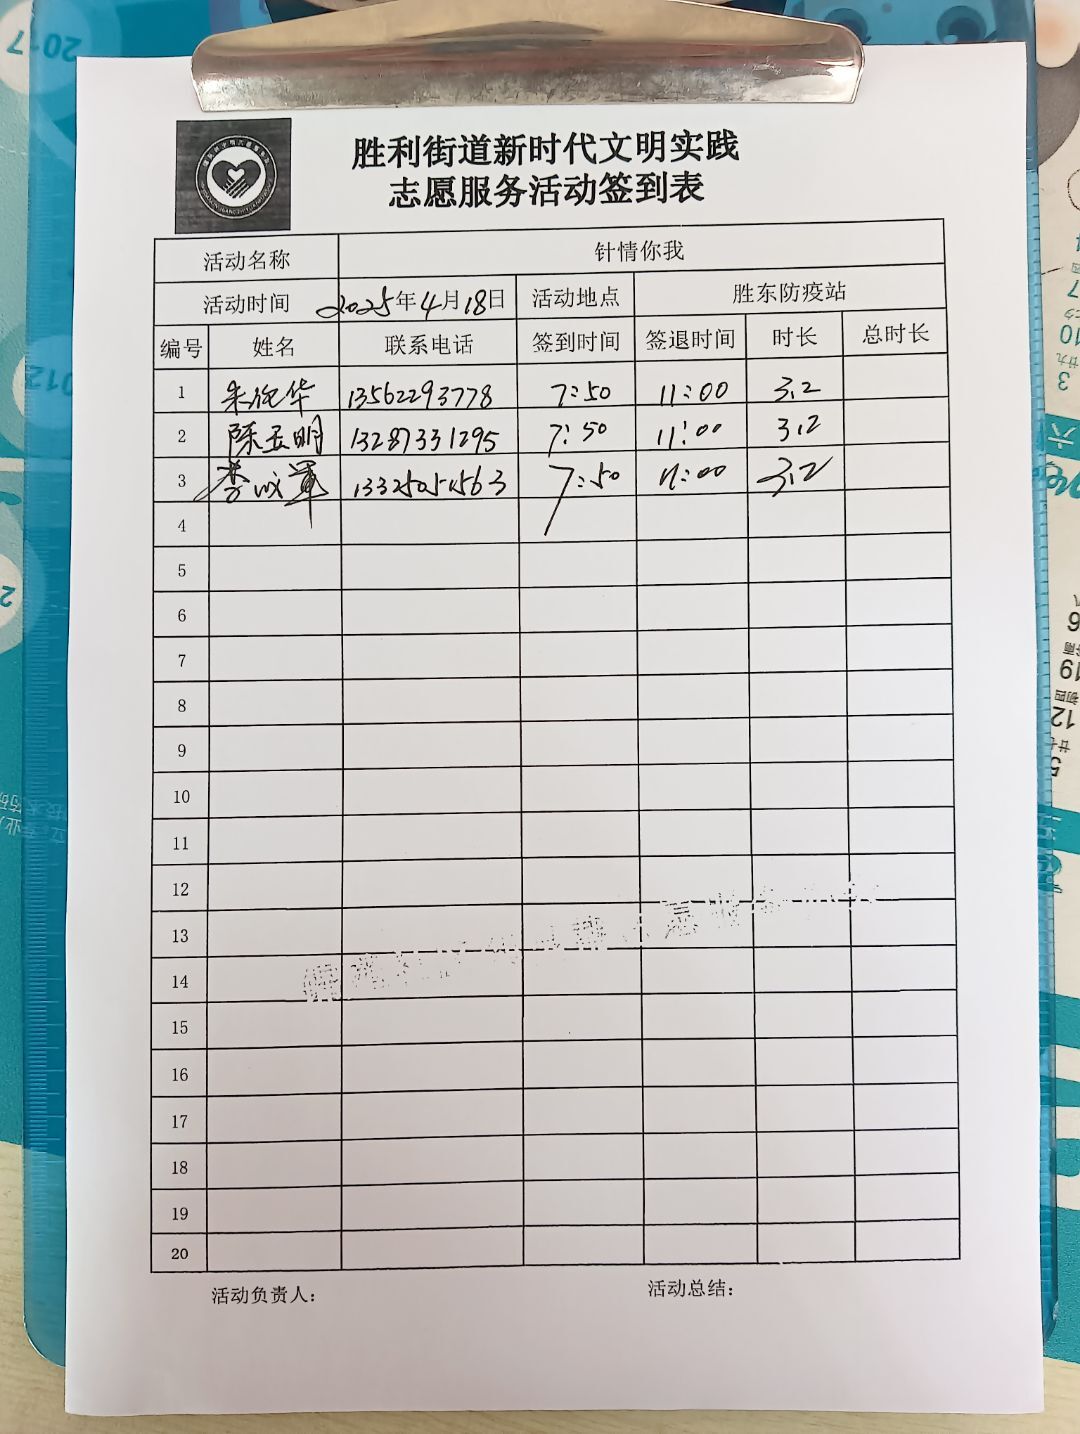 胜利街道新时代文明实践
志愿服务活动签到表
活动名称 针情你我
活动时间 2025年4月18日 活动地点 胜东防疫站
编号 姓名 联系电话 签到时间 签退时间 时长 总时长
1 朱 华 13562293778 7:50 11:00 3.2
2 陈玉明 13287331295 7:50 11:00 3.2
3 李成军 13325051563 7:50 11:00 3.2
4
5
6
7
8
9
10
11
12
13
14
15
16
17
18
19
20
活动负责人: 活动总结: